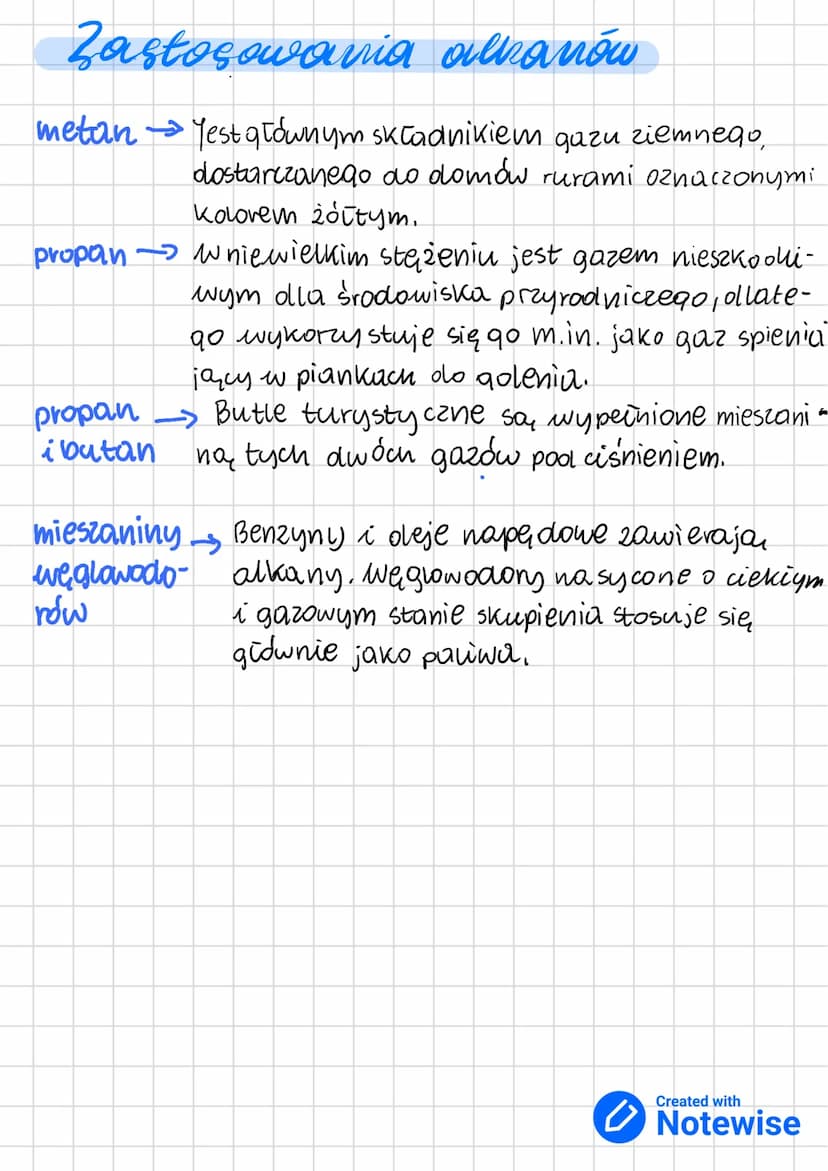 Zastosowania alkanów
metan → Jest głównym składnikiem gazu ziemnego,
dostarczanego do domów rurami oznaczonymi
kolorem żółtym.
propan → W niewielkim stężeniu jest gazem nieszkodli-
wym dla środowiska przyrodniczego, dlate-
go wykorzystuje się go m.in. jako gaz spienia
jący w piankach do golenia.
propan → Butle turystyczne są wypełnione mieszani-
i butan ną tych dwóch gazów pod ciśnieniem.
mieszaniny → Benzyny i oleje napędowe zawierają
węglowodo- alkany. Węglowodory nasycone o ciekłym
rów i gazowym stanie skupienia stosuje się
głównie jako paliwa.
Created with
Notewise